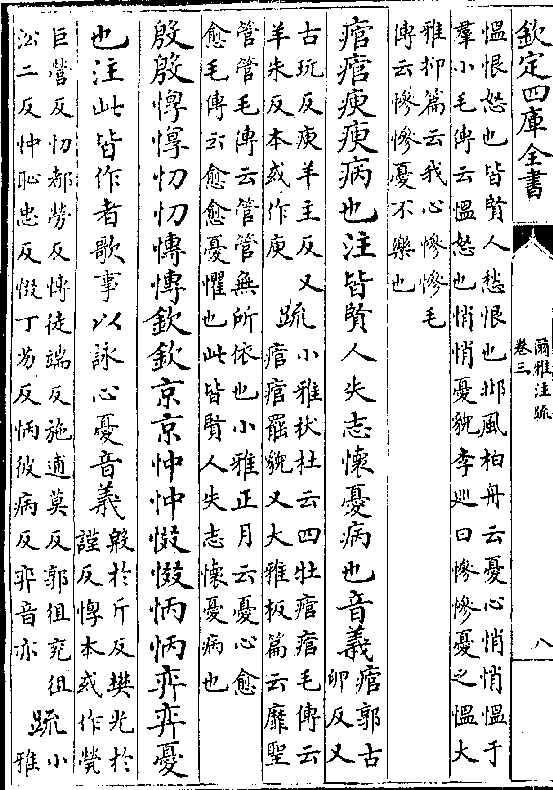 欽定四庫全書
爾雅注疏
卷三
八
慍恨怒也皆賢人愁恨也邶風柏舟云憂心悄悄慍于
羣小毛傳云慍怒也悄悄憂貌李巡曰慘慘憂之慍大
雅抑篇云我心慘慘毛
傳云慘慘憂不樂也
痯痯瘐瘐病也注皆賢人失志懷憂病也音義
痯郭古
卵反又
古玩反瘐羊主反又
羊朱反本或作庾
疏
小雅杕杜云四牡痯痯毛傳云
痯痯罷貌又大雅板篇云靡聖
管管毛傳云管管無所依也小雅正月云憂心愈
愈毛傳云愈愈憂懼也此皆賢人失志懷憂病也
殷殷惸惸忉忉慱慱欽欽京京忡忡惙惙怲怲弈弈憂
也注此皆作者歌事以詠心憂音義
殷於斤反樊光於
謹反惸本或作煢
巨營反忉都勞反慱徒端反施逋莫反郭徂兖徂
二反忡恥忠反惙丁劣反怲彼病反弈音亦
疏
小
雅